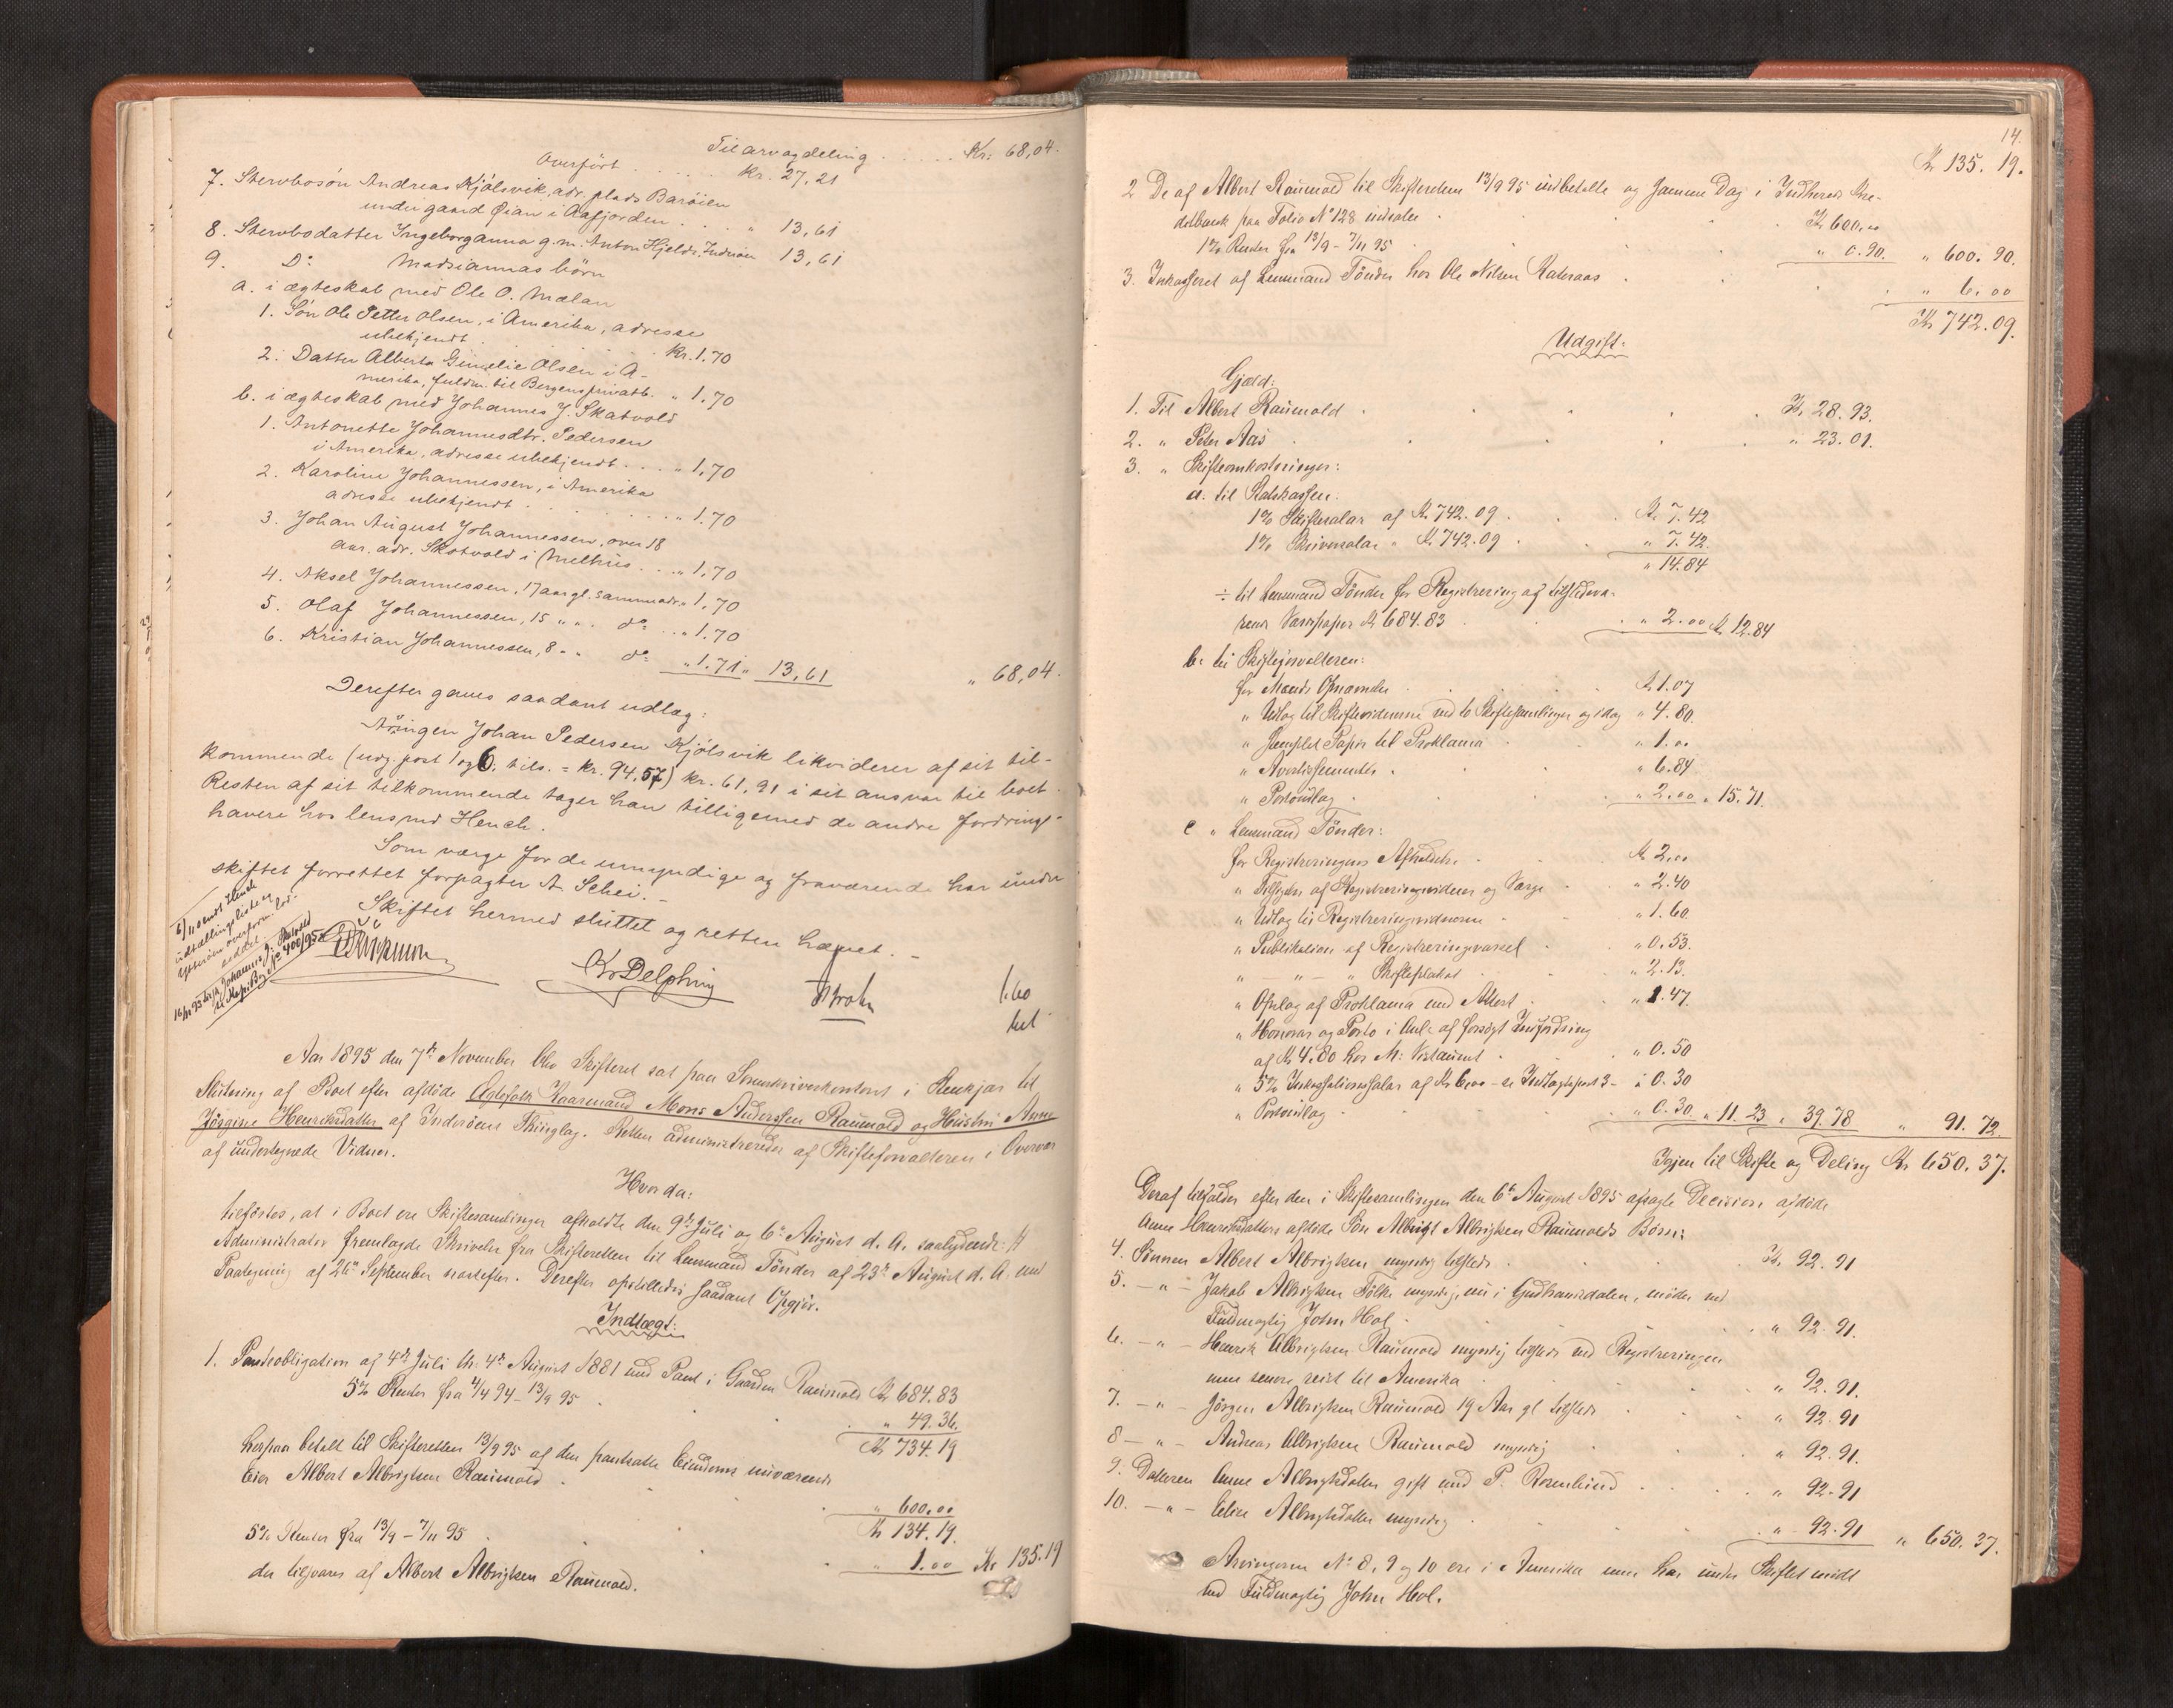 Til arv og deling . . . . . Kr: 68,04.
Overført . . . . . Kr. 27,21
7. Stervbosøn Andreas Kjølsvik, adr. plads Barøien
under gaard Øian i Aafjorden . . . . " 13,61
8. Stervbodatter Ingeborganna g. m. Anton Hjelds. Inderøen 13,61
9. Do Madsiannas børn
a. i ægteskab med Ole O. Mælan
1. Søn Ole Petter Olsen, i Amerika, adresse
ubekjendt . . . . . Kr. 1.70
2. Datter Alberta Olsen i A-
merika, fuldm. til Bergens privatb. " 1,70
b. i ægteskab med Johannes J. Skatvold
1. Antonette Johannesdtr. Pedersen
i Amerika, adresse ubekjendt . . . " 1,70
2. Karoline Johannessen, i Amerika
adresse ubekjendt . . . . . " 1.70
3. Johan August Johannessen, over 18
aar. adr. Skotvold i Melhus . . . " 1,70
4. Aksel Johannessen, 17 aar gl. samme adr. " 1,70
5. Olaf Johannessen, 15 " " . do . . " 1.70
6. Kristian Johannessen, 8 " " do " 1.71 " 13,61 " 68,04.
Derefter gaves saadant udlæg:
Arvingen Johan Pedersen Kjølsvik likviderer af sit til-
kommende (udg. post 1 og 6. tils. = kr. 94,57) kr. 61,91 i sit ansvar til boet.
Resten af sit tilkommende tager han tilligemed de andre fordrings-
havere hos lensmd Hench.
Som værge for de umyndige og fraværende har under
skiftet forrettet forpagter A. Schei. -
Skiftet hermed sluttet og retten hævet. -
6/11 sendt Hench
udtællingsliste og
overform.
seddel
16/11 95 Johannes J. Skatvold
Kopibog No 400/95
Kr Delphin
1.60
bet
Aar 1895 den 7de November blev Skifteret sat paa Sorenskriverkontoret i Stenkjær til
Slutning af Boet efter afdøde Ægtefolk Kaarmand Mons Anderssen Raumold og Hustru Anne
Jørgine Henriksdatter af Inderøens Thinglag. Retten administreredes af Skifteforvalteren i Overvær
af undertegnede Vidner.
Hvorda:
tilførtes, at i Boet ere Skiftesamlinger afholdte den 9de Juli og 6te August d. A. saalydende: #
Administrator fremlagde Skrivelse fra Skifteretten til Lensmand Tønder af 23de August d. A. med
Paategning af 26de September næstefter. Derefter opstilledes saadant Opgjør.
Indtægt:
1. Panteobligation af 4de Juli th. 4de August 1881 med Pant i Gaarden Raumold Kr 684.83
5% Renter fra 4/4 94 - 13/9 95 . " 49.36.
Kr 734.19
herpaa betalt til Skifteretten 13/9 95 af den pantsatte Eiendoms nuværende
Eier Albert Albrigtsen Raumold . " 600.00
Kr 134.19.
5% Renter fra 13/9 - 7/11 95 . " 1.00 Kr 135.19
der tilsvares af Albert Albrigtsen Raumold.
14.
Kr 135. 19.
2 De af Albert Raumold til Skifteretten 13/9 95 indbetalte og samme Dag i Indherreds Kre-
ditbank paa Folio No 128 indsatte . Kr 600.00
1% Renter fra 13/9 - 7/11 95 . " 0.90. " 600. 90.
3. Inkasseret af Lensmand Tønder hos Ole Nilsen Kateraas . " 6.00
Kr 742.09.
Udgift:
Gjæld:
1. Til Albert Raumold . Kr. 28.93.
2. " Peter Aas . " 23.01.
3. " Skifteomkostninger:
a. til Statskassen:
1% Skiftesalar af Kr. 742.09 . Kr. 7.42
1% Skriversalar " Kr 742.09 . " 7.42.
" 14.84
÷ til Lensmand Tønder for Registrering af tilstedevæ-
rende Værdipapir Kr 684.83 . " 2.00 Kr 12.84
b. til Skifteforvalteren:
for Mænds Opnævnelse . Kr 1.07
" Udlæg til Skiftevidnerne ved to Skiftesamlinger og idag " 4.80.
" Stemplet Papir til Proklama " 1.00
" Avertissementer . " 6.84
" Portoudlæg . " 2.00 " 15.71.
c " Lensmand Tønder:
for Registreringens Afholdelse . Kr 2.00
" Tilsigelse af Registreringsvidner og Værge . " 2.40
" Udlæg til Registreringsvidnerne . " 1.60.
" Publikation af Registreringsvarsel . " 0.53.
" - " - " Skifteplakat . " 2.13.
" Opslag af Proklama med Attest . " 1.47.
" Honorar og Porto i Anl. af forsøgt Inddrivning
af Kr 4.80 hos M: . " 0.50
" 5% Inkassationssalar af Kr 6.00 - se Indtægtspost 3 - " 0.30
" Portoudlæg . " 0.30 " 11. 23 " 39.78 " 91. 72.
Igjen til Skifte og Deling Kr 650. 37.
Deraf tilfalder efter den i Skiftesamlingen den 6te August 1895 afsagte Decision afdøde
Anne Henriksdatters afdøde Søn Albrigt Albrigtsen Raumolds Børn:
4. Sønnen Albert Albrigtsen myndig tilstede . Kr. 92. 91
5. - " - Jakob Albrigtsen Tölke myndig, nu i Gudbransdalen, møder ved
Fuldmægtig John Hol . " 92. 91.
6. - " - Henrik Albrigtsen Raumold myndig tilstede ved Registreringen
men senere reist til Amerika . " 92. 91.
7. - " - Jørgen Albrigtsen Raumold 19 Aar gl tilstede . " 92. 91
8 - " - Andreas Albrigtsen Raumold myndig . " 92. 91.
9. Datteren Anne Albrigtsdatter gift med P. Rosenlund . " 92. 91
10. - " - Eline Albrigtsdatter myndig . " 92.91 " 650. 37.
Arvingerne No 8, 9 og 10 ere i Amerika men har under Skiftet mødt
ved Fuldmægtig John Hol.